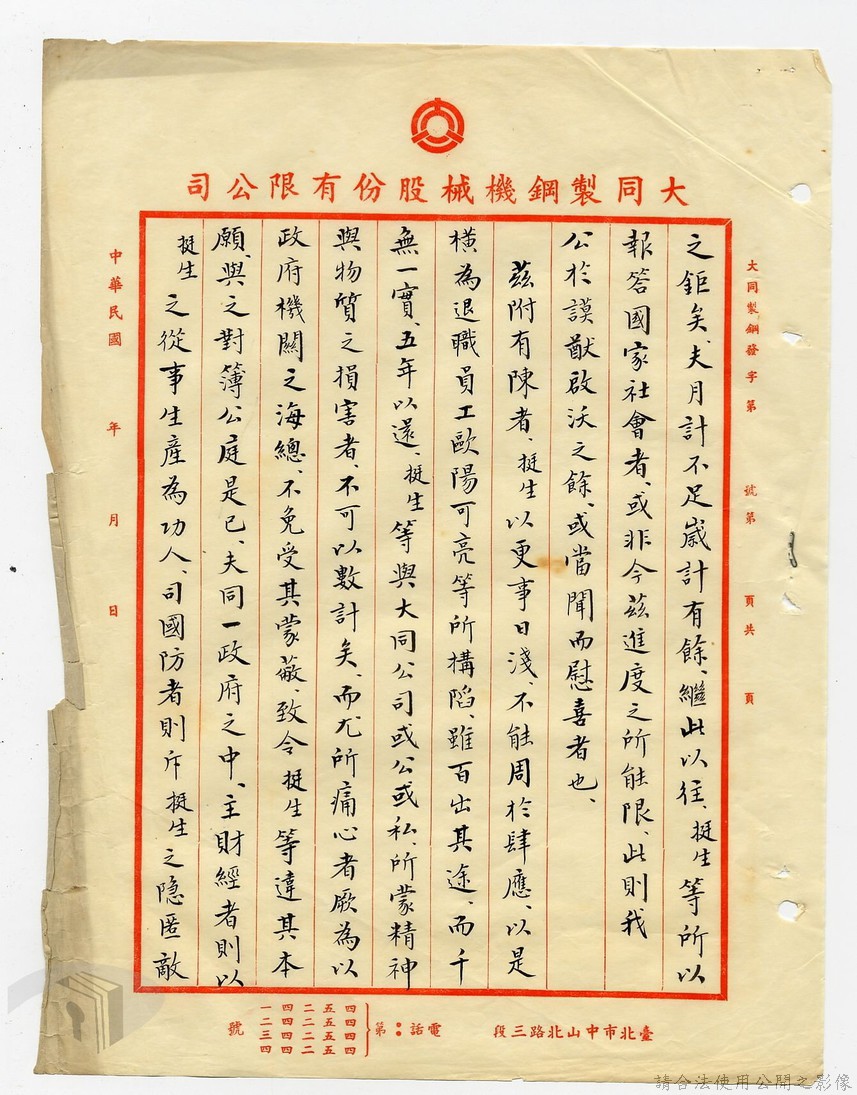 大同製鋼機械股份有限公司
大同製鋼發字第 號第 頁共 頁
之鉅矣、夫月計不足歲計有餘、繼此以往、挺生等所以
報答國家社會者、或非今茲進度之所能限、此則我
公於謨猷啟沃之餘、或當聞而慰喜者也、
茲附有陳者、挺生以更事日淺、不能周於肆應、以是
橫為退職員工歐陽可亮等所構陷、雖百出其途、而千
無一實、五年以還、挺生等與大同公司或公或私、所蒙精神
與物質之損害者、不可以數計矣、而尤所痛心者厥為以
政府機關之海總、不免受其蒙蔽、致令挺生等違其本
願、與之對簿公庭是已、夫同一政府之中、主財經者則以
挺生之從事生產為功人、司國防者則斥挺生之隱匿敵
中華民國 年 月 日
臺北市中山北路三段 電話：第 號
請合法使用公開之影像